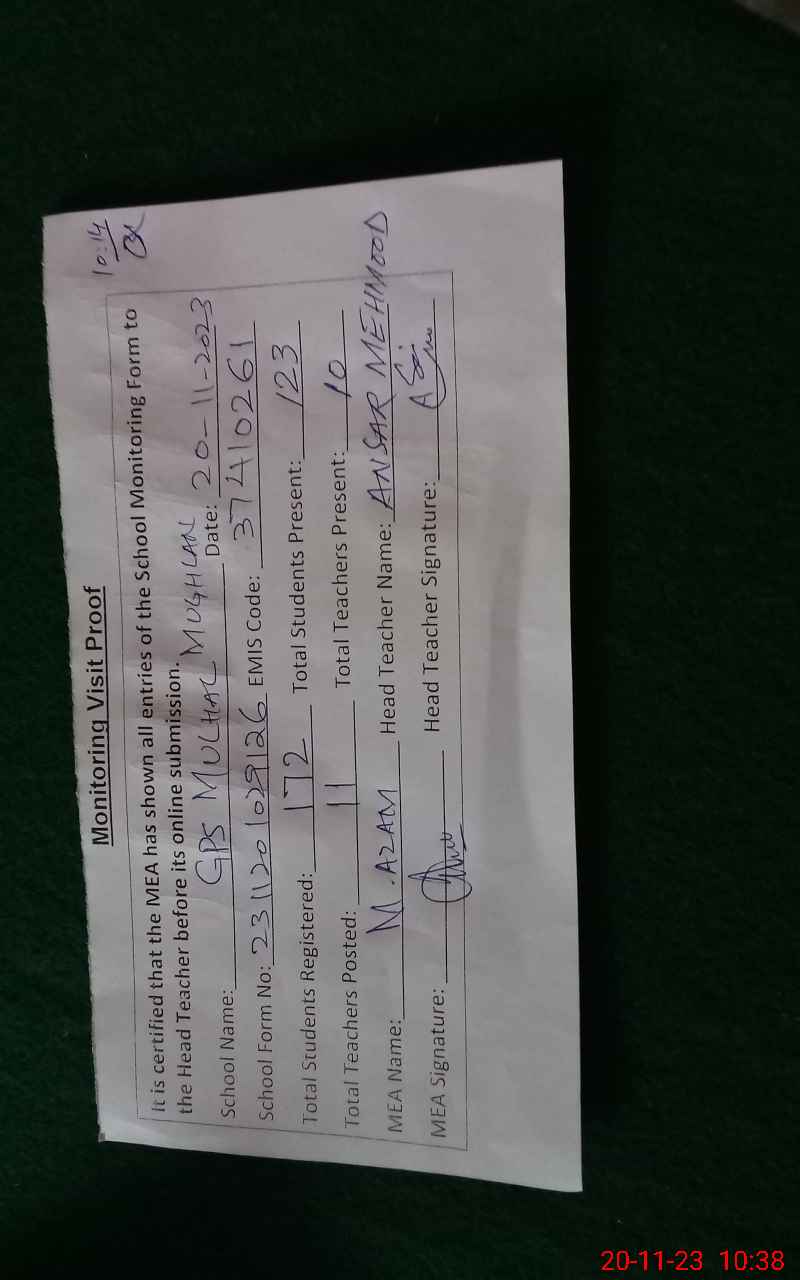 10:14
Monitoring Visit Proof
It is certified that the MEA has shown all entries of the School Monitoring Form to
the Head Teacher before its online submission.
School Name: GPS MULHAL MUGHLAN Date: 20-11-2023
School Form No: 2311201029126 EMIS Code: 37410261
Total Students Registered: 172 Total Students Present: 123
Total Teachers Posted: 11 Total Teachers Present: 10
MEA Name: M.AZAM Head Teacher Name: ANSAR MEHMOOD
MEA Signature: Head Teacher Signature:
20-11-23 10:38